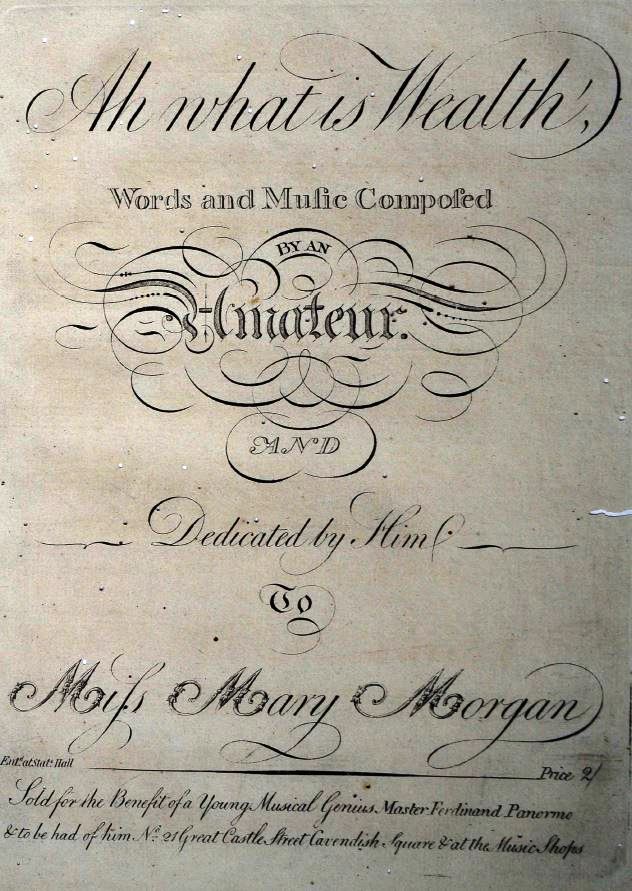 Ah what is Wealth!,
Words and Muſic Compoſed
BY AN
Amateur.
AND
Dedicated by Him
To
Miſs Mary Morgan
Entd. at Statrs. Hall
Price 2/
Sold for the Benefit of a Young Musical Genius Master Ferdinand Panormo
& to be had of him No. 21 Great Castle Street Cavendish Square & at the Music Shops